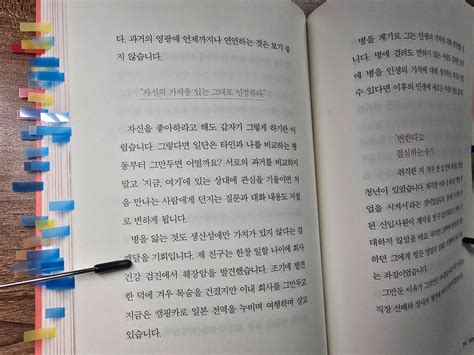 다. 과거의 영광에 언제까지나 연연하는 것은 보기 좋
지 않습니다.
"자신의 가치를 있는 그대로 인정하라"
자신을 좋아하라고 해도 갑자기 그렇게 하기란 어
렵습니다. 그렇다면 일단은 타인과 나를 비교하는 행
동부터 그만두면 어떨까요? 서로의 과거를 비교하지
말고 '지금, 여기'에 있는 상대에 관심을 기울이면 처
음 만나는 사람에게 던지는 질문과 대화 내용도 저절
로 변하게 됩니다.
병을 앓는 것도 생산성에만 가치가 있지 않다는 걸
깨달을 기회입니다. 제 친구는 한창 일할 나이에 회사
건강 검진에서 췌장암을 발견했습니다. 조기에 발견
한 덕에 겨우 목숨을 건졌지만 이내 회사를 그만두고
지금은 캠핑카로 일본 전역을 누비며 여행하며 살고
있습니다.
병을 계기로 그는 인생의
니다. 병에 걸려도 변하지 않는
에 병을 인생의 가치에 대해
수 있다면 이후의 인생에 새로운
'변한다'고
결심하는 용기
취직한 지
청년이 있었습니다.
업을 시켜서'라는
른 신입사원이 계약을
대하지 않았을
그에게 방문 영업
는 좌절이었습니다.
그만둔 이유가
직장 선배와 상사가